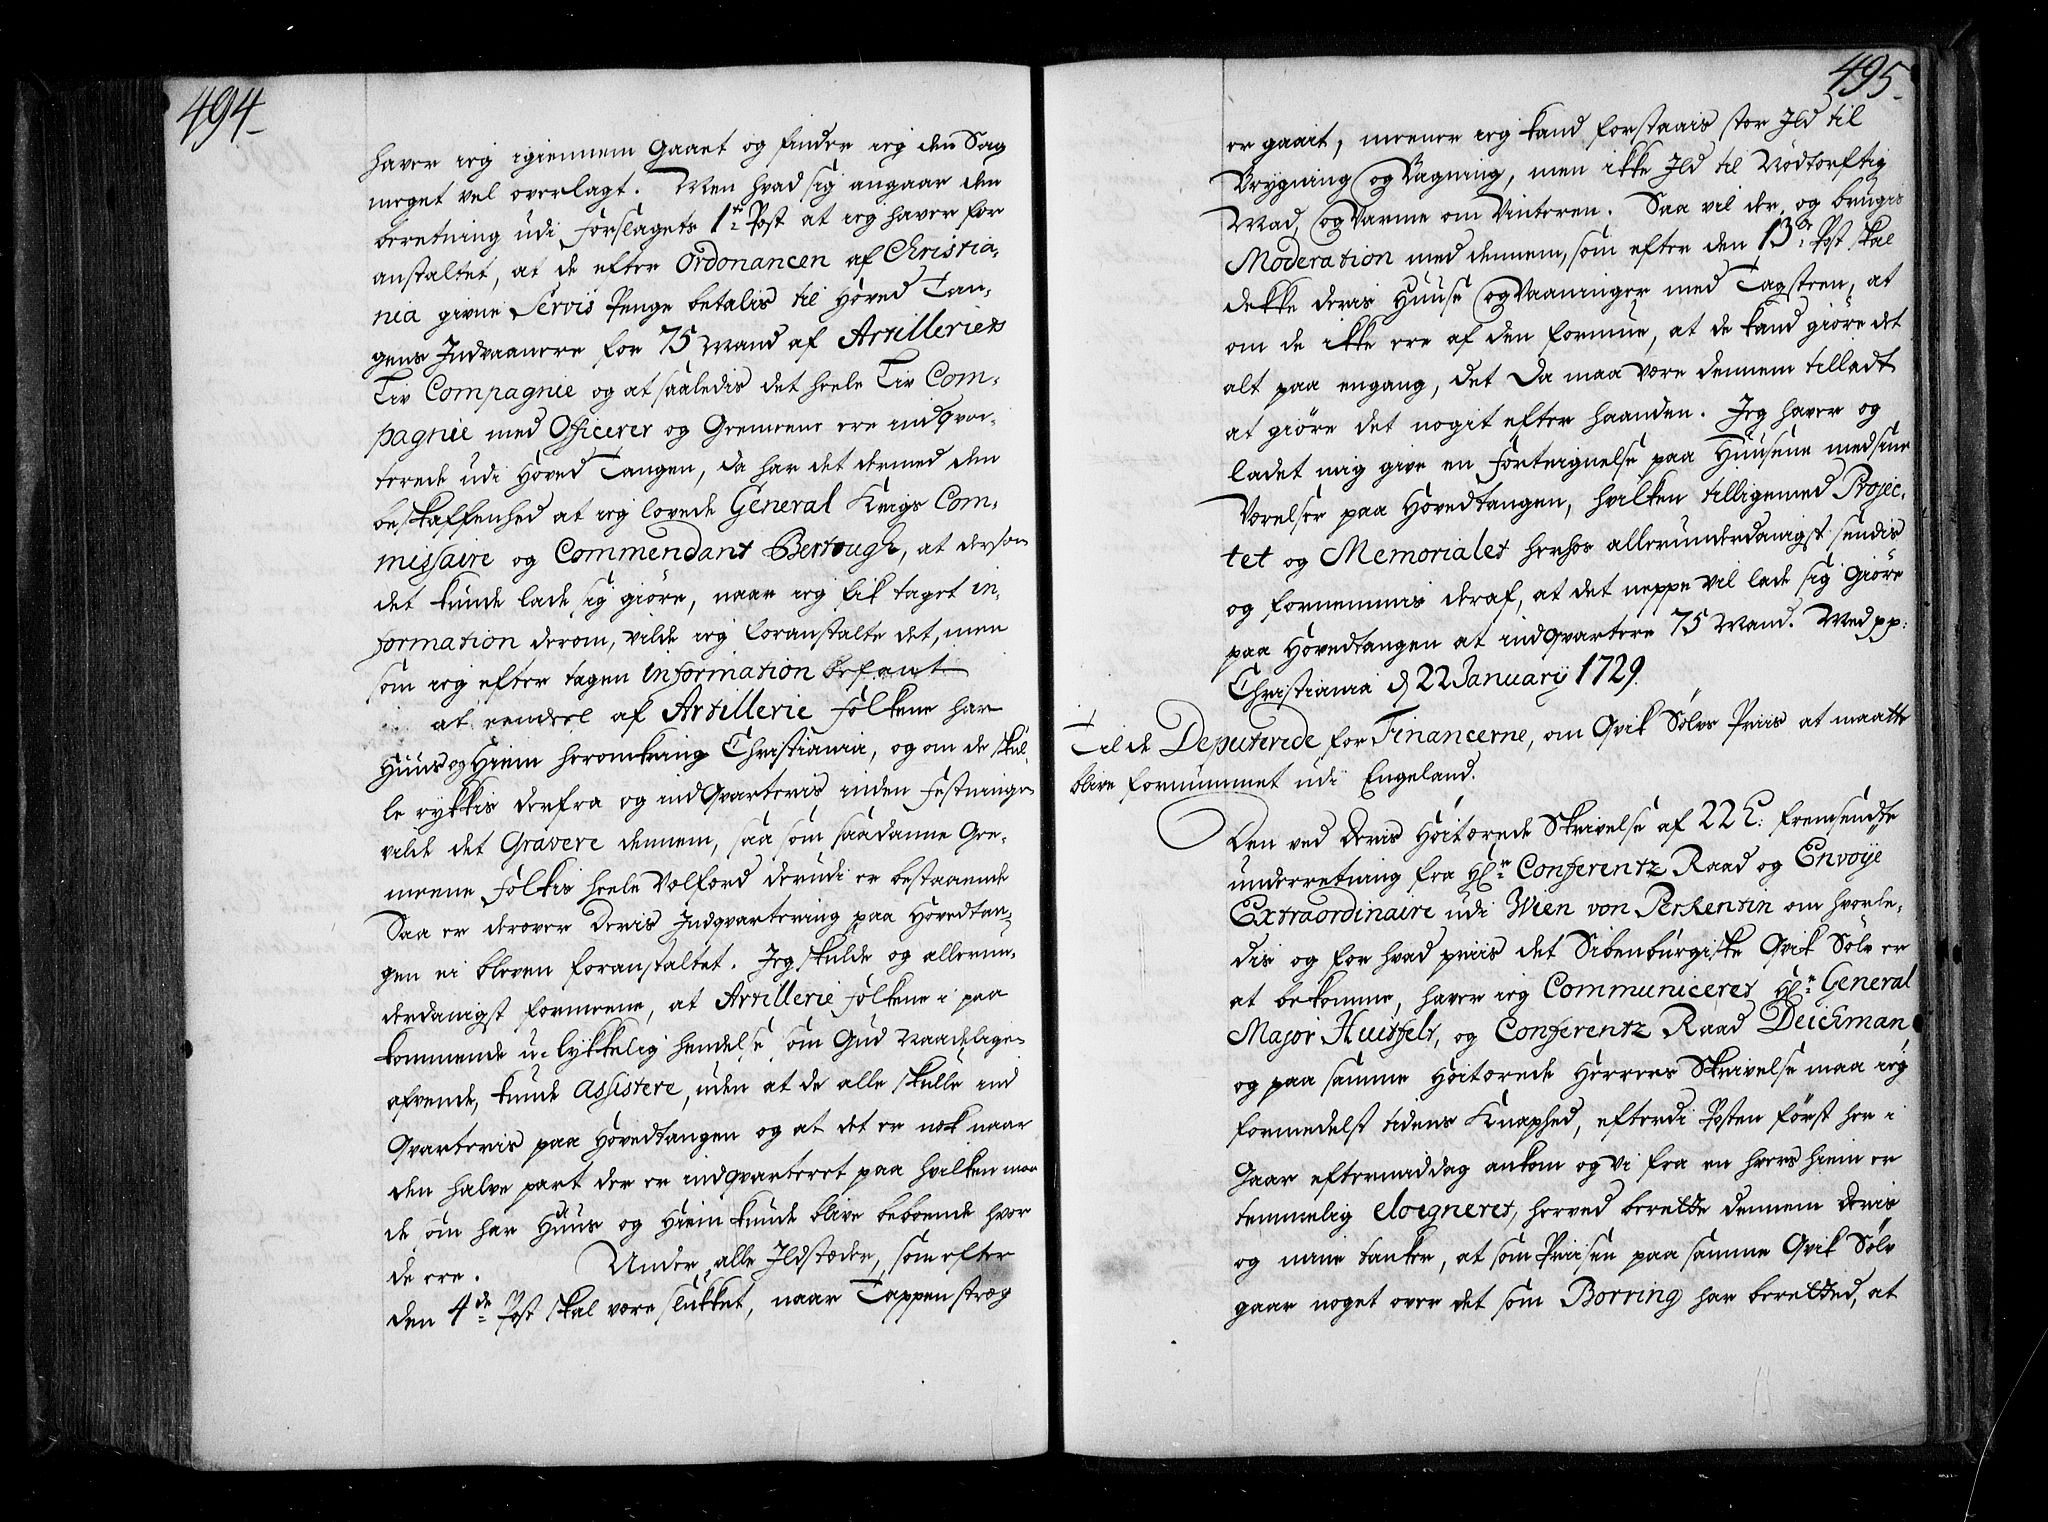 494
haver ieg igiennem Gaaet og finder ieg den Sag
meget vel overlagt. Men hvad sig angaar den
beretning udi forslagets 1te Post at ieg haver for
anstaltet, at de efter Ordonancen af Christia-
nia givne Servis Penge betalis til Hoved Tan-
gens Indvaanere for 75 Mand af Artilleriets
Liv Compagnie og at saaledis det heele Liv Com-
pagnie med Officerer og Gemeene ere indqvar-
terede udi Hoved Tangen, da har det dermed den
beskaffenhed at ieg lovede General Krigs Com-
missaire og Commendant Bertough, at dersom
det kunde lade sig giøre, naar ieg fik taget in-
formation derom, vilde ieg foranstalte det, men
som ieg efter tagen information befant
at eendeel af Artillerie folkene har
Huus og Hiem heromkring Christiania, og om de skul-
le rykkis derfra og indqvarteris inden festningen
vilde det Gravere dennem, saa som saadanne Ge-
meene folkis heele Velferd derudi er bestaaende
Saa er derover deris Indqvartering paa Hovedtan-
gen ei bleven foranstaltet. Jeg skulde og allerun-
derdanigst formeene, at Artillerie folkene i paa
kommende u-lykkelig hendelse som Gud Naadeligen
afvende, kunde assistere, uden at de alle skulle ind
qvarteris paa Hovedtangen og at det er nok naar
den halve part der er indqvarteret paa hvilken maa
de om har Huus og Hiem kunde blive beboende hvor
de ere. Under alle Ildstæder, som efter
den 4de Post skal være slukket, naar Tappenstræg
495
er gaait, meener ieg kand forstaais stor Ild til
Brygning og Bagning, men ikke Ild til Nødtorftig
Mad, og Varme om Vinteren. Saa vil der og brugis
Moderation med dennem, som efter den 13de Post skal
dekke deris Huuse og Vaaninger med Tagsteen, at
om de ikke ere af den formue, at de kand giøre det
alt paa engang, det da maa være dennem tilladt
at giøre det nogit efter haanden. Jeg haver og
ladet mig give en forteignelse paa Huusene med sine
Værelser paa Hovedtangen, hvilken tilligemed Projec-
tet og Memorialet herhos allerunderdanigst sendis
og fornemmis deraf, at det neppe vil lade sig giøre
paa Hovedtangen at indqvartere 75 Mand. Med pp:
Christiania d 22 Januarij 1729.
Til de Deputerede for Financerne, om Qvik Sølvs Priis at maatte
blive fornummet udi Engeland.
Den ved deris Høitærede Skrivelse af 22 fremsendte
underretning fra Hr Conferentz Raad og Envoÿe
Extraordinaire udi Wien von Perkentin om hvorle-
dis og for hvad priis det Sibenburgiske Qvik Sølv er
at bekomme, haver ieg Communiceret Hr General
Major Huitfelt, og Conferentz Raad Deichman
og paa samme Høitærede Herrers Skrivelse maa ieg
formedelst tidens Knaphed, efterdi Posten først her i
Gaar eftermiddag ankom og vi fra en hvers hiem er
temmelig eloigneret, herved berette dennem deris
og mine tanker, at som Priisen paa samme Qvik Sølv
gaar noget over det som Borring har beretted, at